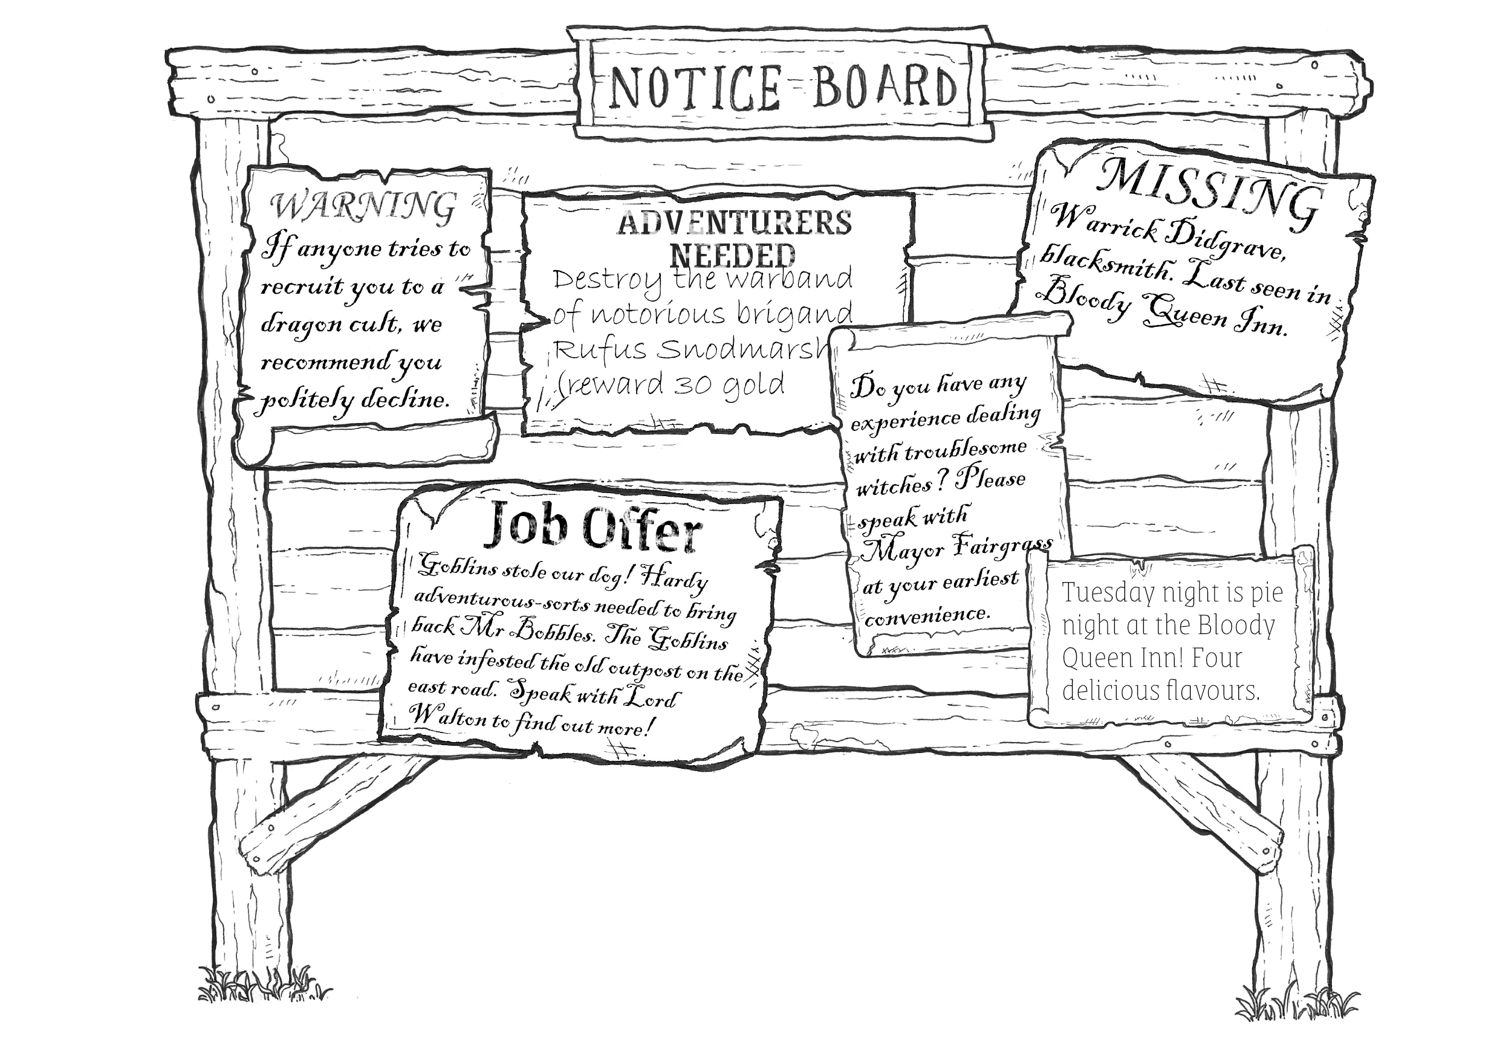 NOTICE BOARD
WARNING
If anyone tries to
recruit you to a
dragon cult, we
recommend you
politely decline.
ADVENTURERS
NEEDED
Destroy the warband
of notorious brigand
Rufus Snodmarsh
(reward 30 gold
MISSING
Warrick Didgrave,
blacksmith. Last seen in
Bloody Queen Inn.
Do you have any
experience dealing
with troublesome
witches? Please
speak with
Mayor Fairgrass
at your earliest
convenience.
Job Offer
Goblins stole our dog! Hardy
adventurous-sorts needed to bring
back Mr Bobbles. The Goblins
have infested the old outpost on the
east road. Speak with Lord
Walton to find out more!
Tuesday night is pie
night at the Bloody
Queen Inn! Four
delicious flavours.